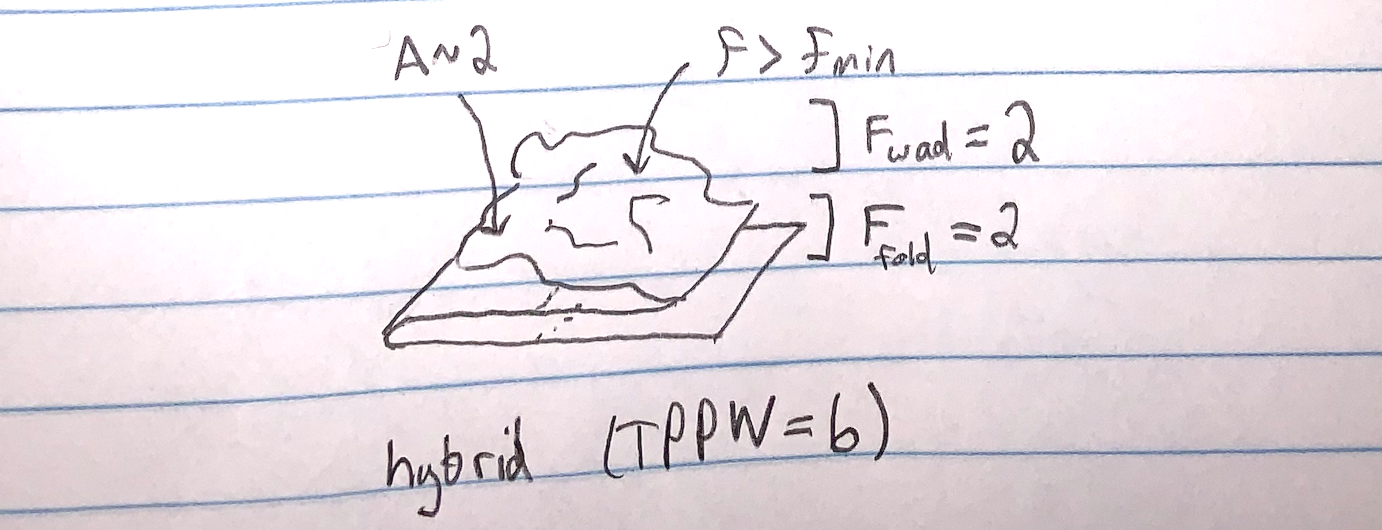 A~2
F > Fmin
] Fwad = 2
] Ffold = 2
hybrid (TPPW=6)